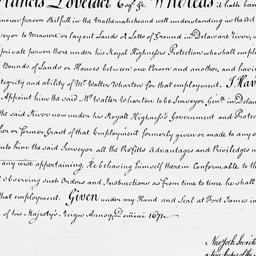 Francis Lovelace Esqr &c. Whereas it hath been
nown person skilfull in the Mathematicks and well understanding in the Art
veyor to Measure or lay out Lands or Lotts of Ground in Delaware River,
private person there under his Royal Highness's Protection who shall employ
Bounds of Lands or Houses between one Person and another, and having
tegrity and ability of Mr. Walter Wharton for that employment. I Have
Appoint him the said Mr. Walter Wharton to be Surveyor Genll. in Delaw
the said River now under his Royal Highness's Government and Protec
ther or former Grant of that Employment formerly given or made to any o
nto him the said Surveyor all the Profitts Advantages and Priviledges u
any wise appertaining, He behaving himself therein Conformable to th
d observing such Orders and Instructions as from time to time he shall
that employment. Given under my Hand and Seal at Fort James in
of his Majesty's Reign Annoq Domini 1671
New York Secre